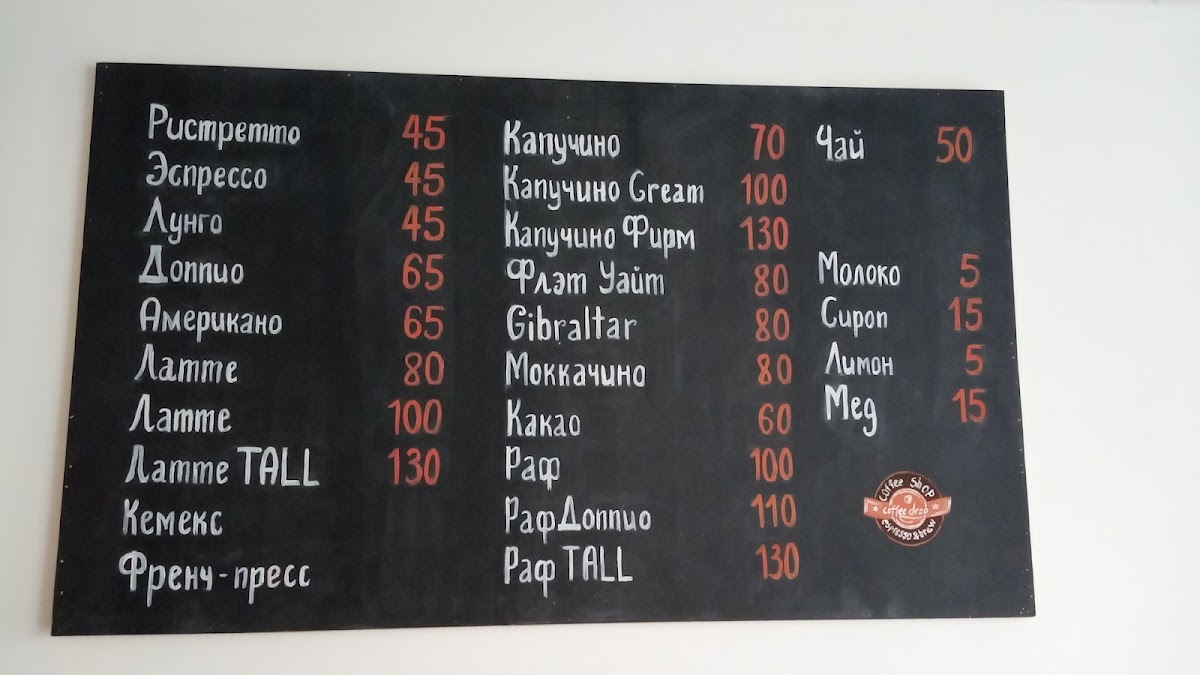 Ристретто 45
Эспрессо 45
Лунго 45
Доппио 65
Американо 65
Латте 80
Латте 100
Латте TALL 130
Кемекс
Френч-пресс
Капучино 70
Капучино Cream 100
Капучино Фирм 130
Флэт Уайт 80
Gibraltar 80
Моккачино 80
Какао 60
Раф 100
Раф Доппио 110
Раф TALL 130
Чай 50
Молоко 5
Сироп 15
Лимон 5
Мед 15
Coffee Shop
coffee drop
espresso & brew